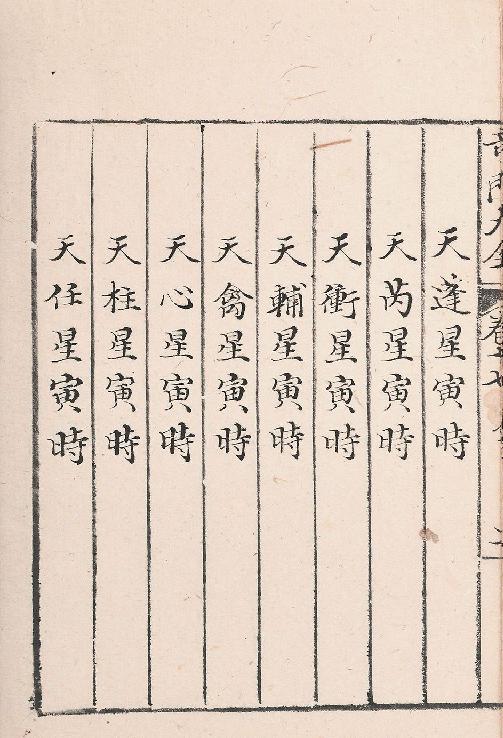 天蓬星寅時
天芮星寅時
天衝星寅時
天輔星寅時
天禽星寅時
天心星寅時
天柱星寅時
天任星寅時